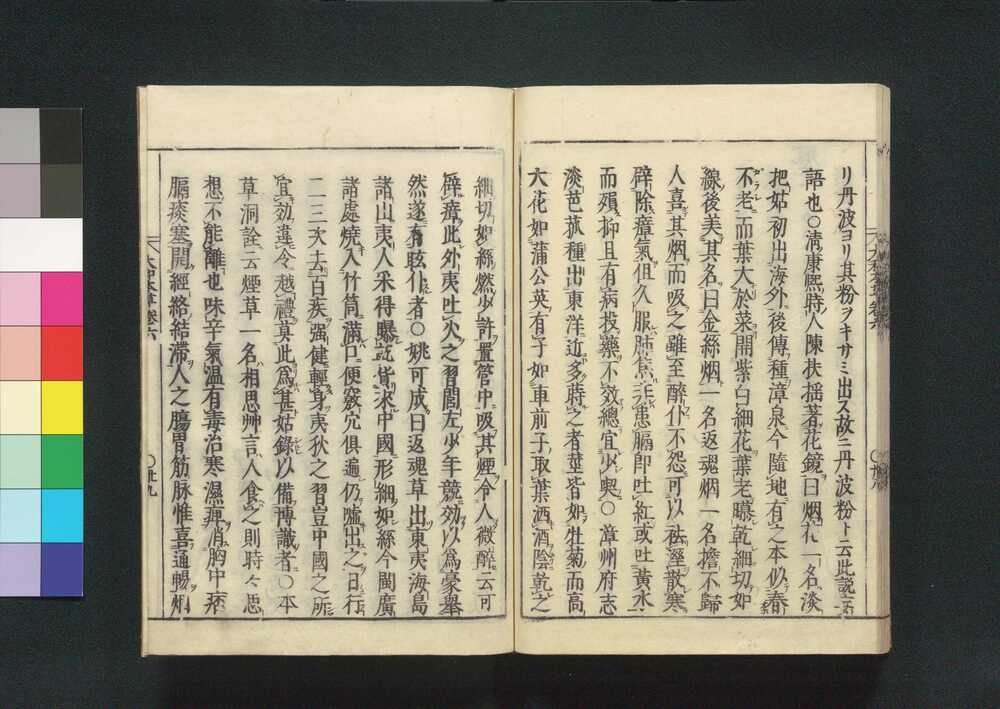 リ丹波ヨリ其粉ヲキサミ出ス故ニ丹波粉ト云此説
語也〇淸康熙時人陳扶揺著花鏡曰烟花一名淡
把姑初出海外後傳種漳泉今隨地有之本似春
不老而葉大於菜開紫白細花葉老曝乾細切如
線後美其名曰金絲烟一名返魂烟一名擔不歸
人喜其烟而吸之雖至醉仆不怨可以祛溼散寒
辟除瘴氣但久服肺焦患膈即吐紅或吐黃水
而殞抑且有病投藥不效總宜少喫〇漳州府志
淡芭菰種出東洋近多蒔之者莖皆如牡菊而高
大花如蒲公英有子如車前子取葉洒酒陰乾之
細切如絲燃少許置管中吸其煙令人微醉云可
辟瘴此外夷吐火之習閭左少年競效以爲豪舉
然遂有眩仆者〇姚可成曰返魂草出東夷海島
諸山夷人采得曝乾貨來中國形細如絲今閩廣
諸處燒入竹筒滿口便竅穴俱遍仍噓出之日行
二三次去百疾强健輕身夷狄之習豈中國之所
宜効違令越禮莫此爲甚姑錄以備博識者〇本
草洞詮云煙草一名相思艸言人食之則時々思
想不能離也味辛氣温有毒治寒濕痺消胸中痞
膈痰塞開經絡結滯人之腸胃筋脉惟喜通暢煙
大和本草卷六
〇廿九